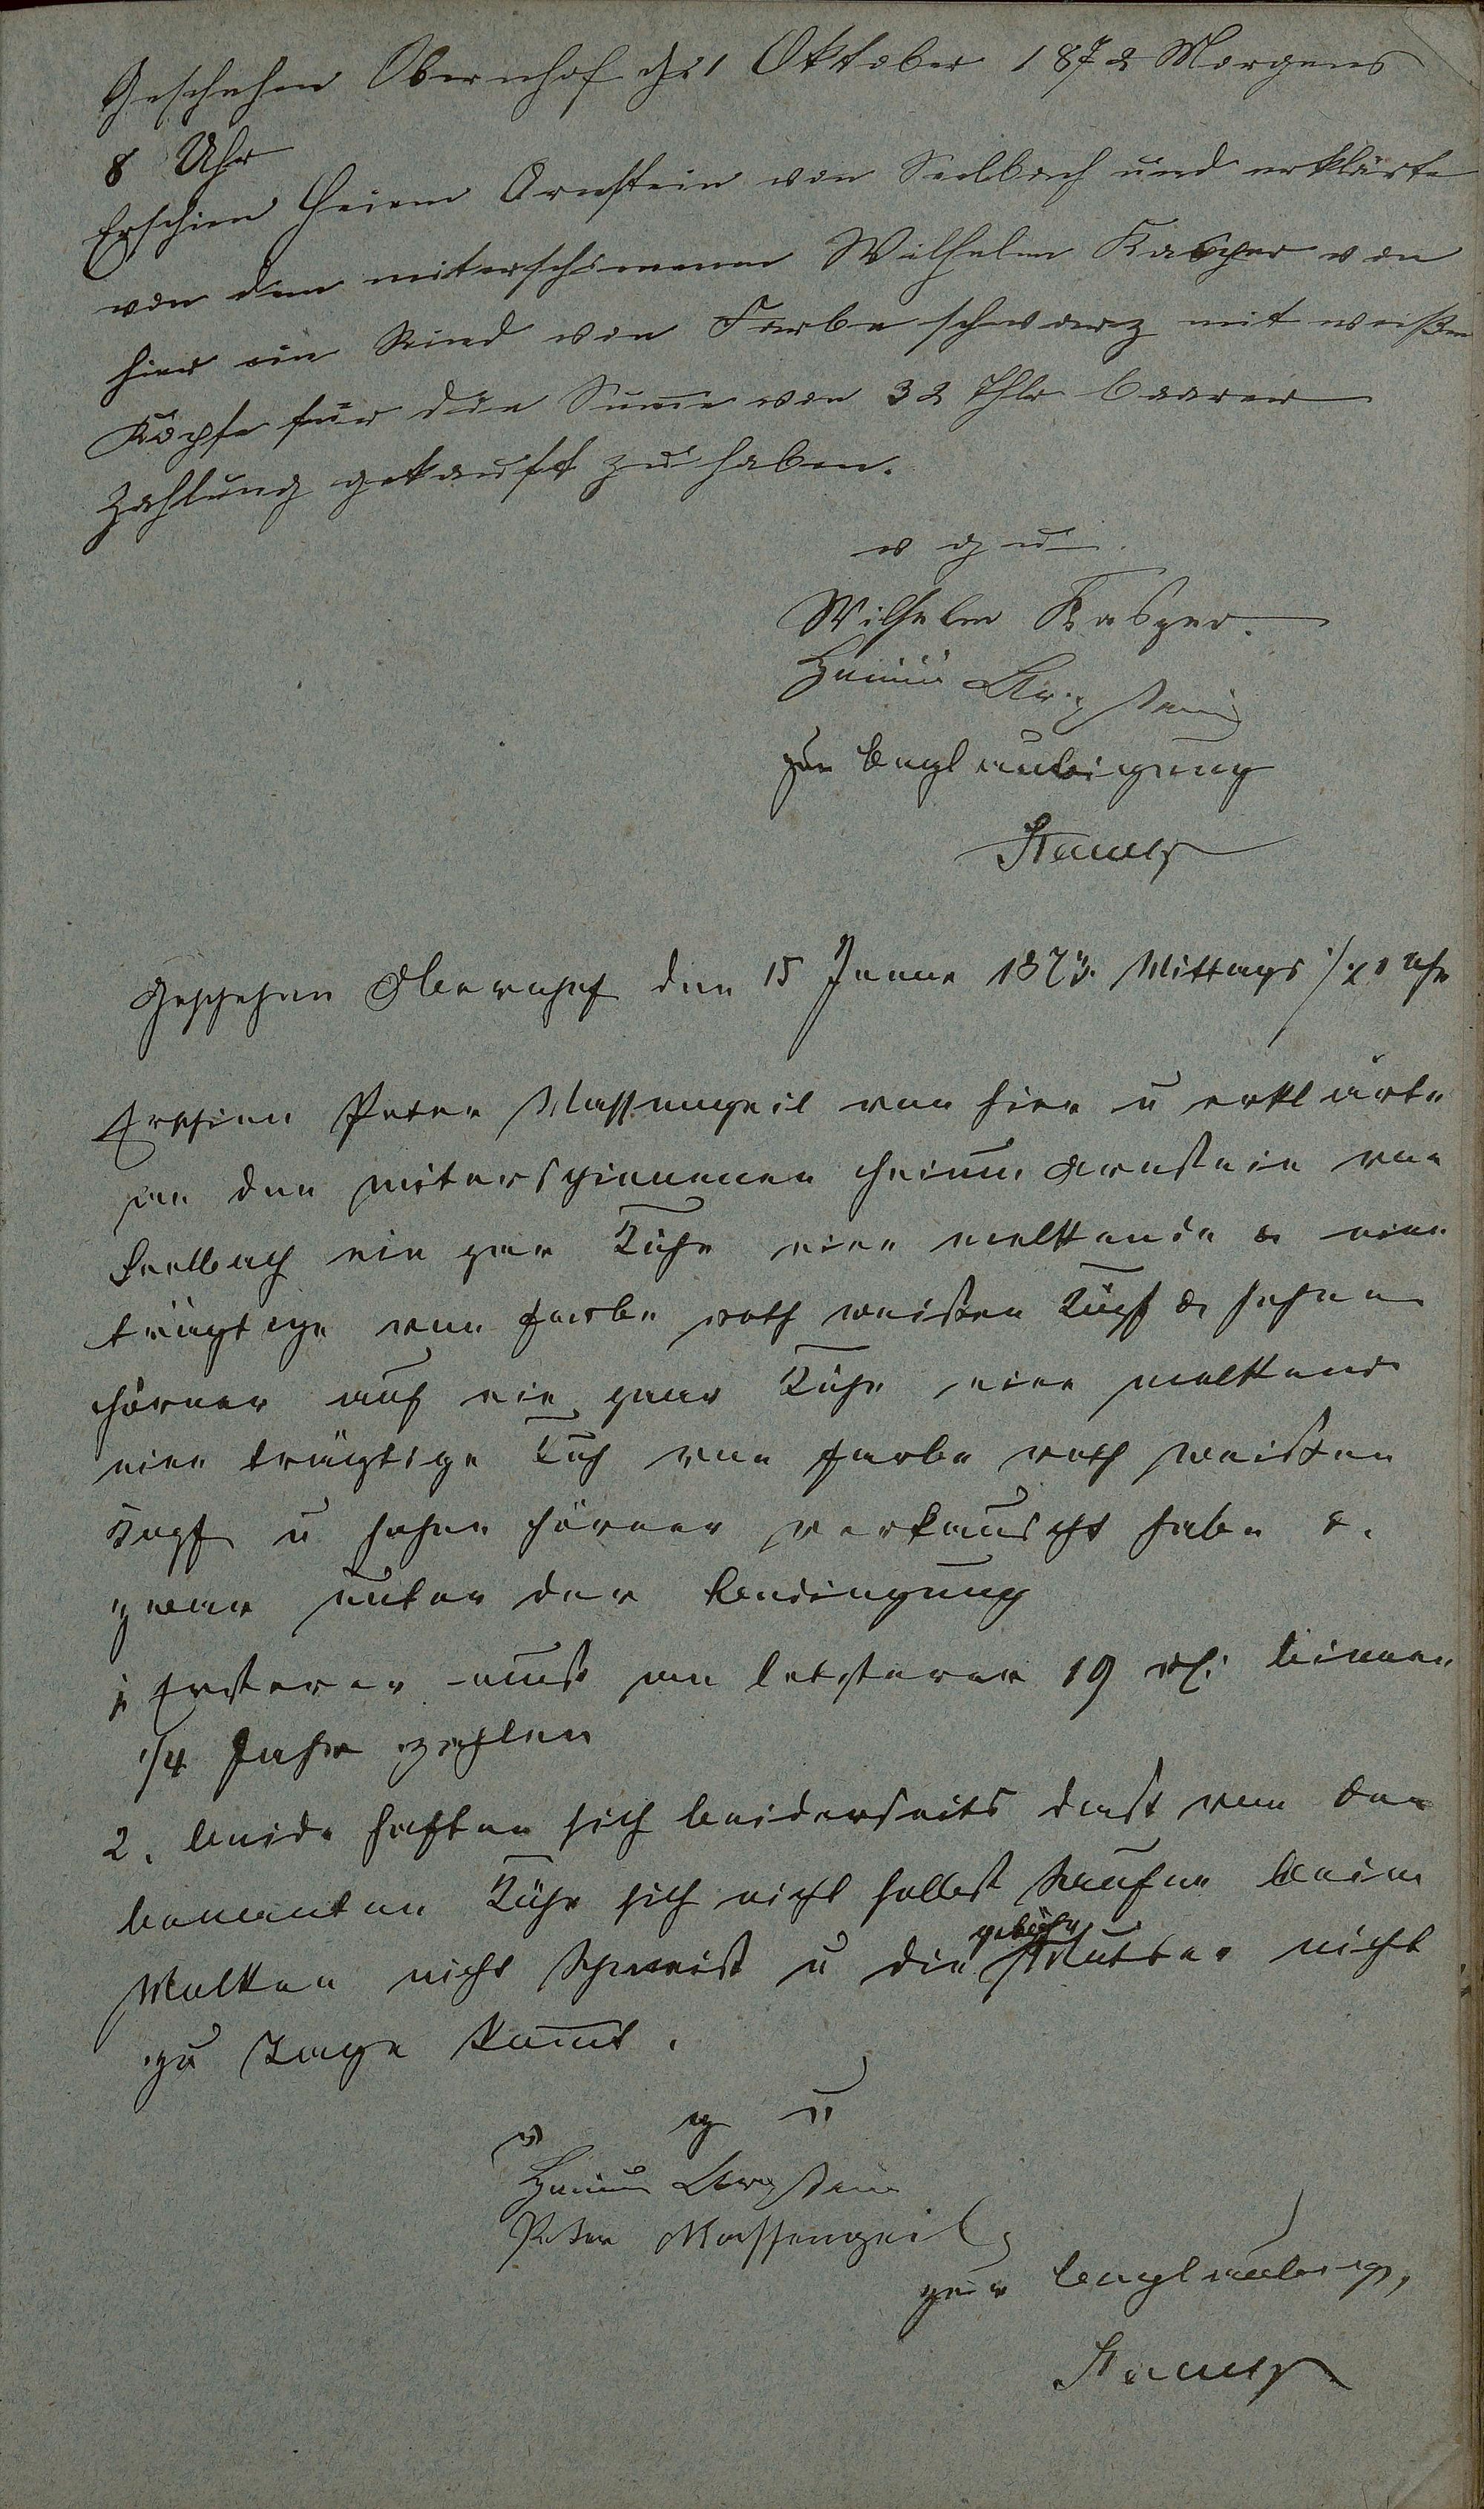 Geschehen Obernhof d 1 Oktober 1872 Morgens
8 Uhr
Erschien Heium Arnstein von Seelbach und erklärte
von dem miterschienenen Wilhelm Kasper von
hier ein Rind von Farbe schwarz mit weißem
Kopfe für die Sume von 32 Thlr baarer
Zahlung gekauft zu haben.
v g u.
Wilhelm Kasper.
Heium Arnstein
zur Beglaubigung
Geschehen Obernhof den 15 Januar 1873. Mittags 1/2 1 Uhr
Erschien Peter Massengeil von hier u erklärte
an den miterschienenen Heium Arnstein von
Seelbach ein par Kühe eine melkende & eine
trägtige von Farbe roth weißen Kopf &
Hörner auf ein paar Kühe eine melkend
eine trägtige Kuh von Farbe roth weißen
Kopf u Hörner vertauscht habe &.
zwar unter der Bedingung
1 Ersterer muß an letzterer 19 rh: binnen
1/4 Jahr zahlen
2. beide haften sich beiderseits daß von den
benanten Kühe sich nicht selbst Saufen beim
Melken nicht Schmeist u die Mutter nicht
zu Tage komt.
v g u
Heium Arnstein
Peter Massengeil
zur Beglaubig,